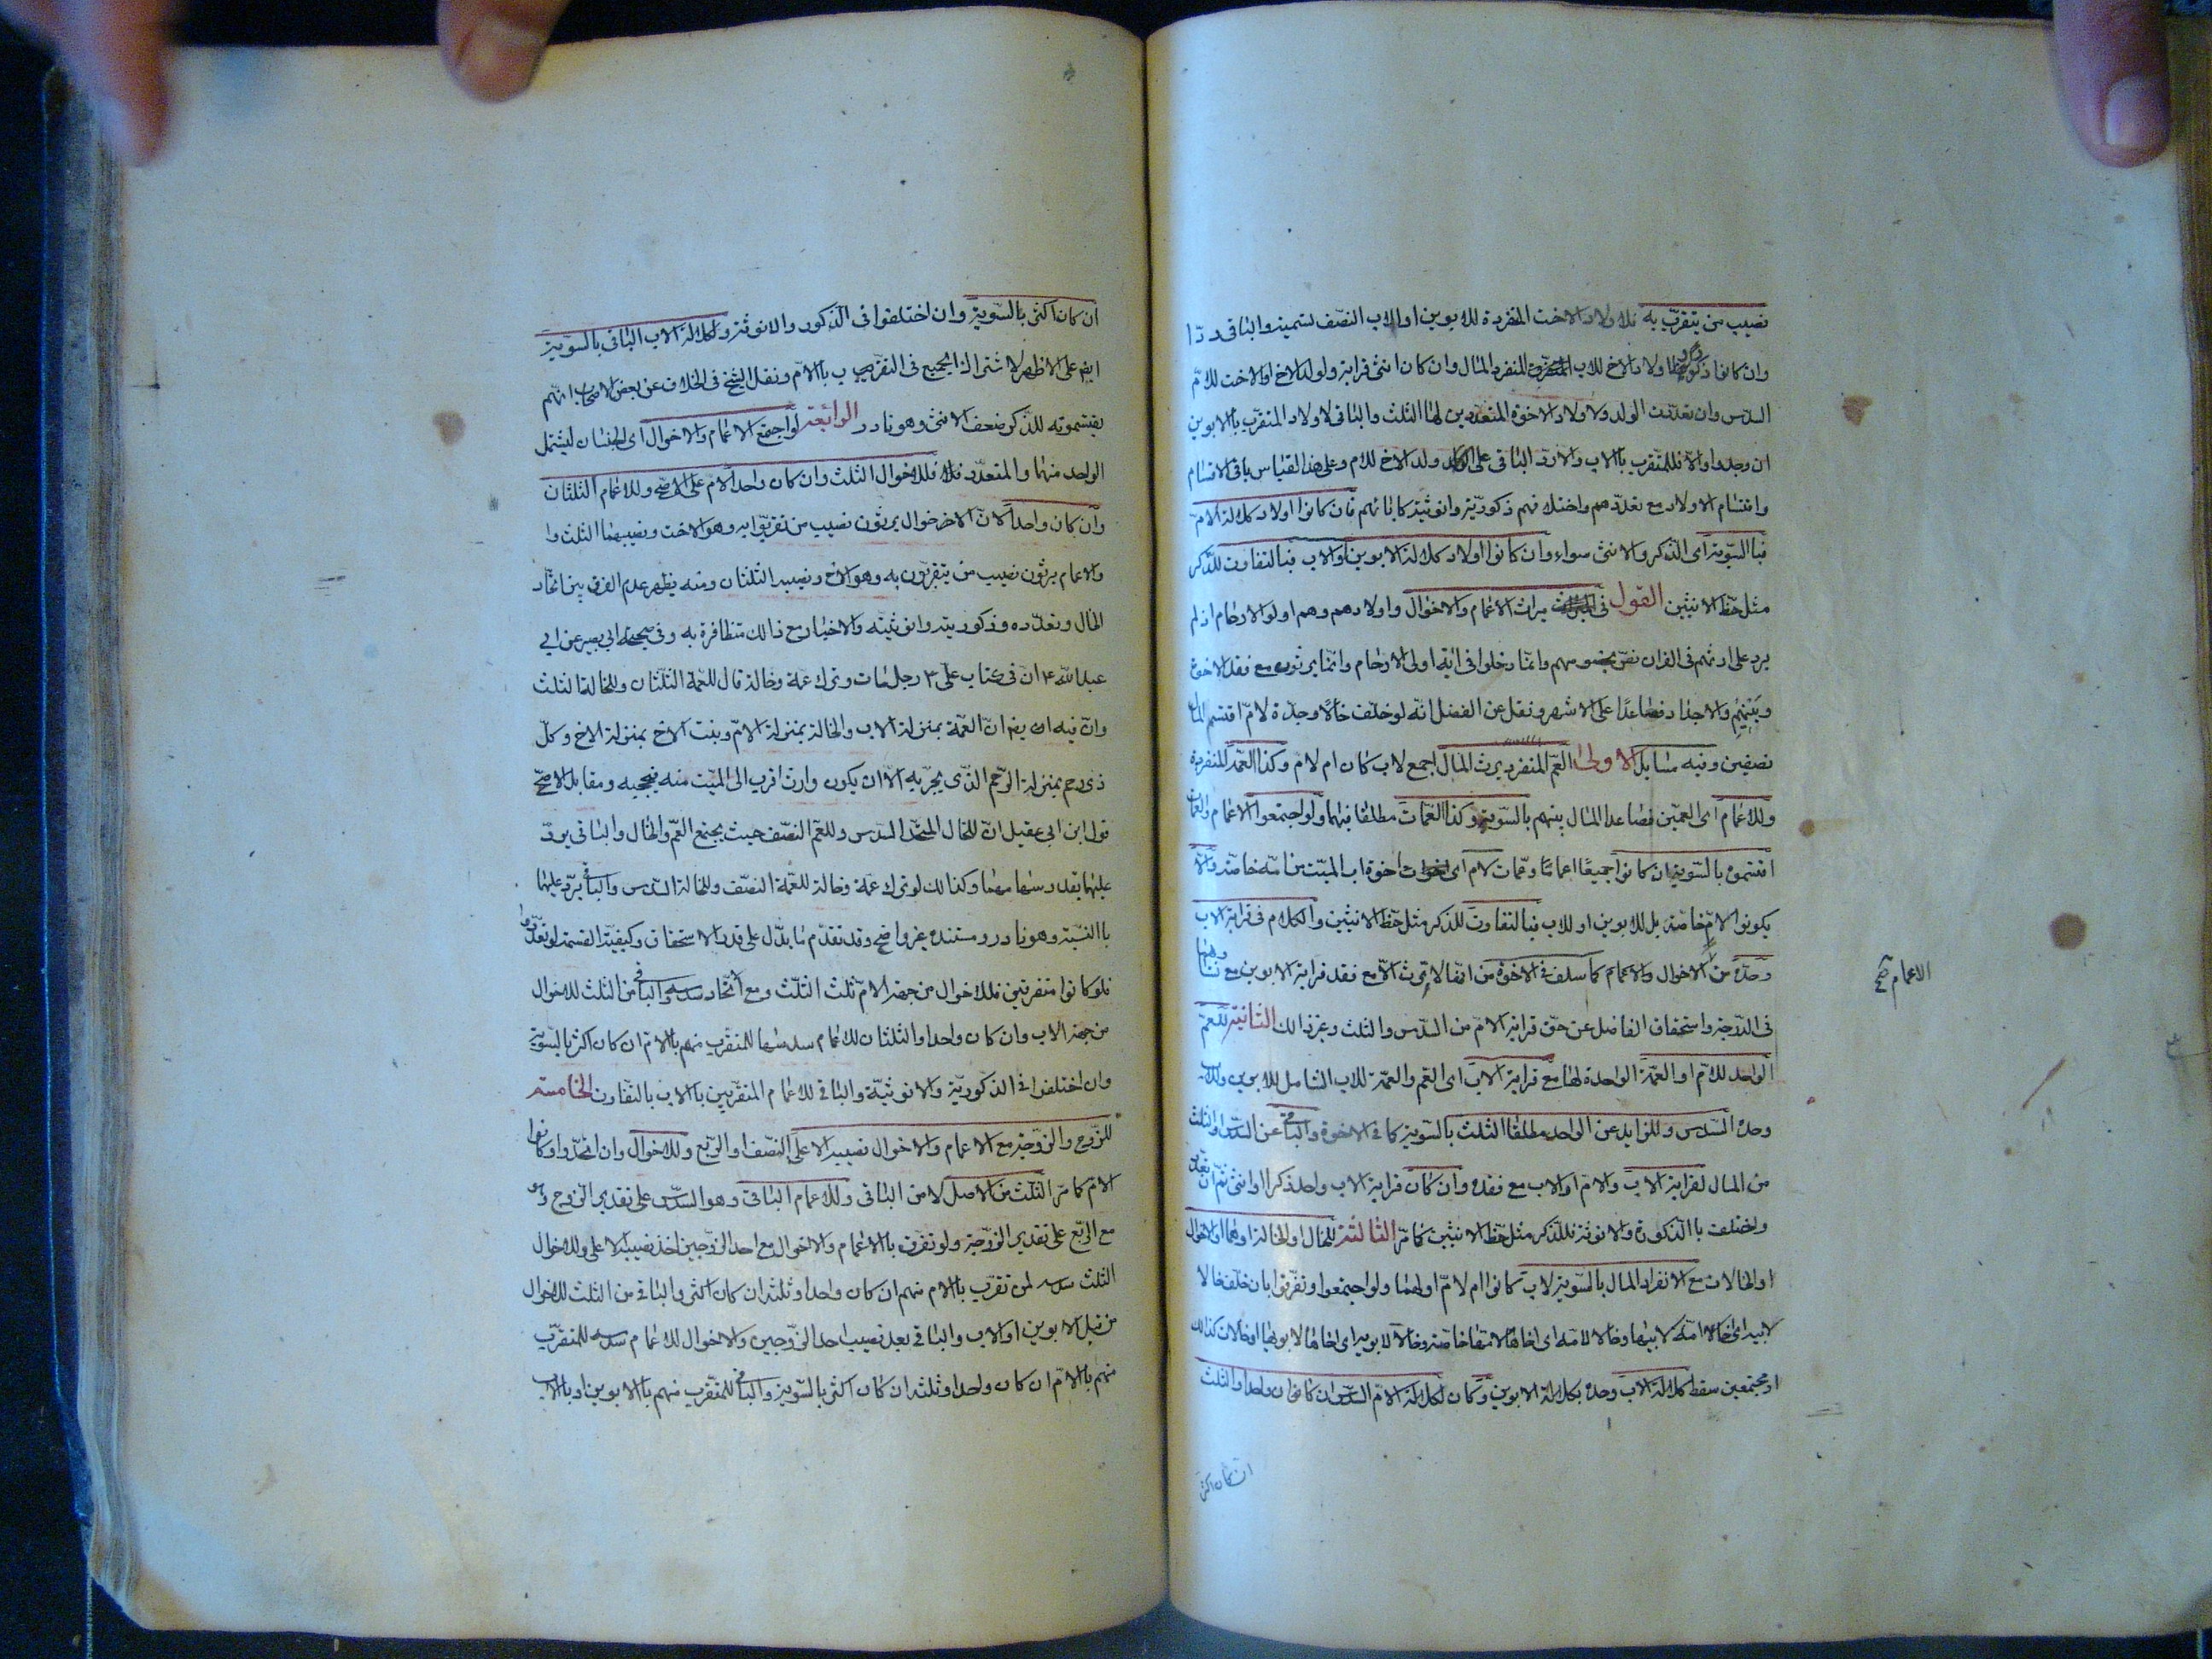 نصيب من يتقرب به فلاولاد الاخت المنفردة للابوين او للاب النصف تسمية والباقى ردّا
وان كانوا ذكورا ولاولاد الاخ للاب المنفرد المال وان كان انثى قرابة ولولد الاخ او الاخت للامّ
السدس وان تعدّدت الولد ولاولاد الاخوة المتعددين لها الثلث والباقى لاولاد المتقرب بالابوين
ان وجدوا والا فللمتقرب بالاب والا ردّ الباقى على ولد الاخ للام وعلى هذا القياس باقى الاقسام
واقتسام الاولاد مع تعدّدهم واختلافهم ذكوريّة وانوثيّة كابائهم فان كانوا اولاد كلالة الامّ
فبالسّوية اى الذّكر والانثى سواء وان كانوا اولاد كلالة الابوين او الاب فبالتفاوت للذّكر
مثل حظّ الانثيين القول فى ميراث الاعمام والاخوال واولادهم وهم اولو الارحام اذ لم
يرد على ارثهم فى القران نصّ بخصوصهم وانّما دخلوا فى اية اولى الارحام وانّما يرثون مع فقد الاخوة
وبنيهم والاجداد فصاعدًا على الاشهر ونقل عن الفضل انّه لو خلّف خالًا وجدّة لامّ اقتسم المال
نصفين وفيه مسايل الاولى العمّ المنفرد يرث المال اجمع لاب كان ام لام وكذا العمّة المنفردة
وللاعمام اى العمّين فصاعدا المال بينهم بالسّوية وكذا العمّات مطلقا فيهما ولو اجتمعوا الاعمام والعمات
اقتسموه بالسّوية ان كانوا جميعًا اعمامًا وعمّات لام اى اخوة اب الميّت من امّه خاصّة والّا
يكونوا لامّ خاصّة بل للابوين او للاب فبالتفاوت للذكر مثل حظّ الانثيين والكلام فى قرابة الاب
وحده من الاخوال والاعمام كما سلف فى الاخوة من انّها لا ترث الّا مع فقد قرابة الابوين مع تساويهما
الاعمام صح
فى الدّرجة واستحقاق الفاضل عن حقّ قرابة الامّ من السدّس والثلث وغير ذالك الثّانية للعمّ
الواحد للامّ او العمّة الواحدة لها مع قرابة الاب اى العمّ والعمّة للاب الشامل للابوين وللاب
وحده السّدس وللزايد عن الواحد مطلقًا الثلث بالسّوية كما فى الاخوة والباقى عن السّدس والثلث
من المال لقرابة الاب والامّ او الاب مع فقده وان كان قرابة الاب واحدا ذكرا او انثى ثمّ ان تعدّد
واختلف بالذّكورة والانوثة فللذّكر مثل حظّ الانثيين كما مرّ الثّالثة للخال او الخالة او هما او الاخوال
او الخالات مع الانفراد المال بالسّوية لاب كانوا ام لامّ او لهما ولو اجتمعوا وتفرّقوا بان خلّف خالا
لابيه اى اخا امّه لابيها وخالا لامّه اى اخاها لامّها خاصّة وخالا لابويه اى اخاها لابويها او خالات كذالك
او مجتمعين سقط كلالة الاب وحده بكلالة الابوين وكان لكلالة الامّ السّدس ان كانوا واحدا والثلث
ان كان اكثر
ان كان اكثر بالسّوية وان اختلفوا فى الذّكورة والانوثة ولكلالة الاب الباقى بالسّوية
ايضا على الاظهر لاشتراك الجميع فى التقرّب بالامّ ونقل الشّيخ فى الخلاف عن بعض الاصحاب انّهم
يقتسمونه للذّكر ضعف الانثى وهو نادر الرابعة لو اجتمع الاعمام والاخوال اى الجنسان ليشتمل
الواحد منهما والمتعدّد فللاخوال الثلث وان كان واحدا لامّ على الاصح وللاعمام الثلثان
وان كان واحدًا لانّ الاخوال يرثون نصيب من تقرّبوا به وهو الاخت ونصيبها الثلث
والاعمام يرثون نصيب من يتقرّبون به وهو الاخ ونصيبه الثلثان ومنه يظهر عدم الفرق بين اتّحاد
الخال وتعدّده وذكوريته وانوثيته والاخبار مع ذالك متظافرة به وفى صحيحة ابى بصير عن ابى
عبدالله ع ان فى كتاب على ع رجل مات وترك عمّة وخالة قال للعمّة الثلثان وللخالة الثلث
وانّ فيه ايضا انّ العمّة بمنزلة الاب والخالة بمنزلة الامّ وبنت الاخ بمنزلة الاخ وكلّ
ذى رحم بمنزلة الرّحم الذّى يجرّ به الّا ان يكون وارث اقرب الى الميّت منه فيحجبه ومقابل الاصحّ
قول ابن ابى عقيل انّ للخال المتّحد السّدس وللعمّ النصّف حيث يجتمع العمّ والخال والباقى يردّ
عليهما بقدر سهامهما وكذالك لو ترك عمّة وخالة للعمّة النصّف وللخالة السّدس والباقى يردّ عليهما
بالنّسبة وهو نادر ومستنده غير واضح وقد تقدّم ما يدّل على قدر الاستحقاق وكيفيّة القسمة لو تعدّدوا
فلو كانوا متفرقين فللاخوال من جهة الامّ ثلث الثلّث ومع اتّحاد سدسه والباقى من الثلث للاخوال
من جهة الاب وان كان واحدا والثلثان للاعمام سدسها للمتقرّب منهم بالامّ ان كان اكثر بالسّوية
وان اختلفوا فى الذكوريّة والانوثيّة والباقى للاعمام المتقرّبين بالاب بالتّفاوت الخامسة
للزّوج والزّوجة مع الاعمام والاخوال نصيبه الاعلى النصّف او الرّبع وللاخوال وان اتّحدوا او كانوا
لامّ كما مرّ الثلّث من الاصل لا من الباقى وللاعمام الباقى وهو السّدس على تقدير الزّوج وهو
مع الرّبع على تقدير الزّوجة ولو تفرّق بالاعمام والاخوال مع احد الزّوجين اخذ نصيبه الاعلى وللاخوال
الثلث سدسه لمن تقرّب بالام منهم ان كان واحدا وثلثه ان كان اكثر والباقى من الثلث للاخوال
من قبل الابوين او الاب والباقى بعد نصيب احد الزّوجين والاخوال للاعمام سدسه للمتقرّب
منهم بالامّ ان كان واحدا وثلثه ان كان اكثر بالسّوية والباقى للمتقرب منهم بالابوين او بالاب